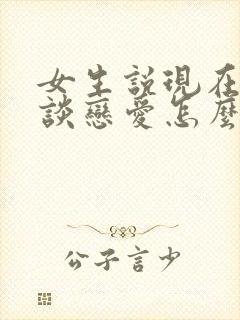 女生説現在
談戀愛怎麼
公子言少